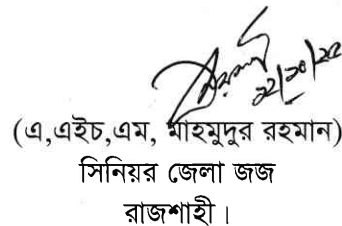 ২২/১০/২৫
(এ,এইচ,এম, মাহমুদুর রহমান)
সিনিয়র জেলা জজ
রাজশাহী।